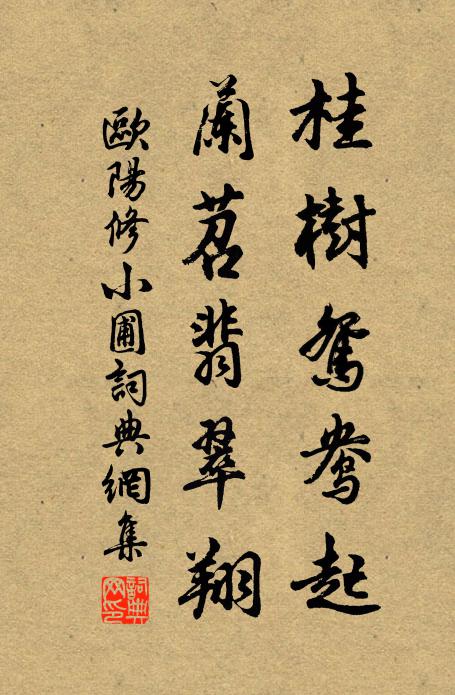 桂樹鴛鴦起
蘭苕翡翠翔
歐陽修小圃詞典網集
詞典网印